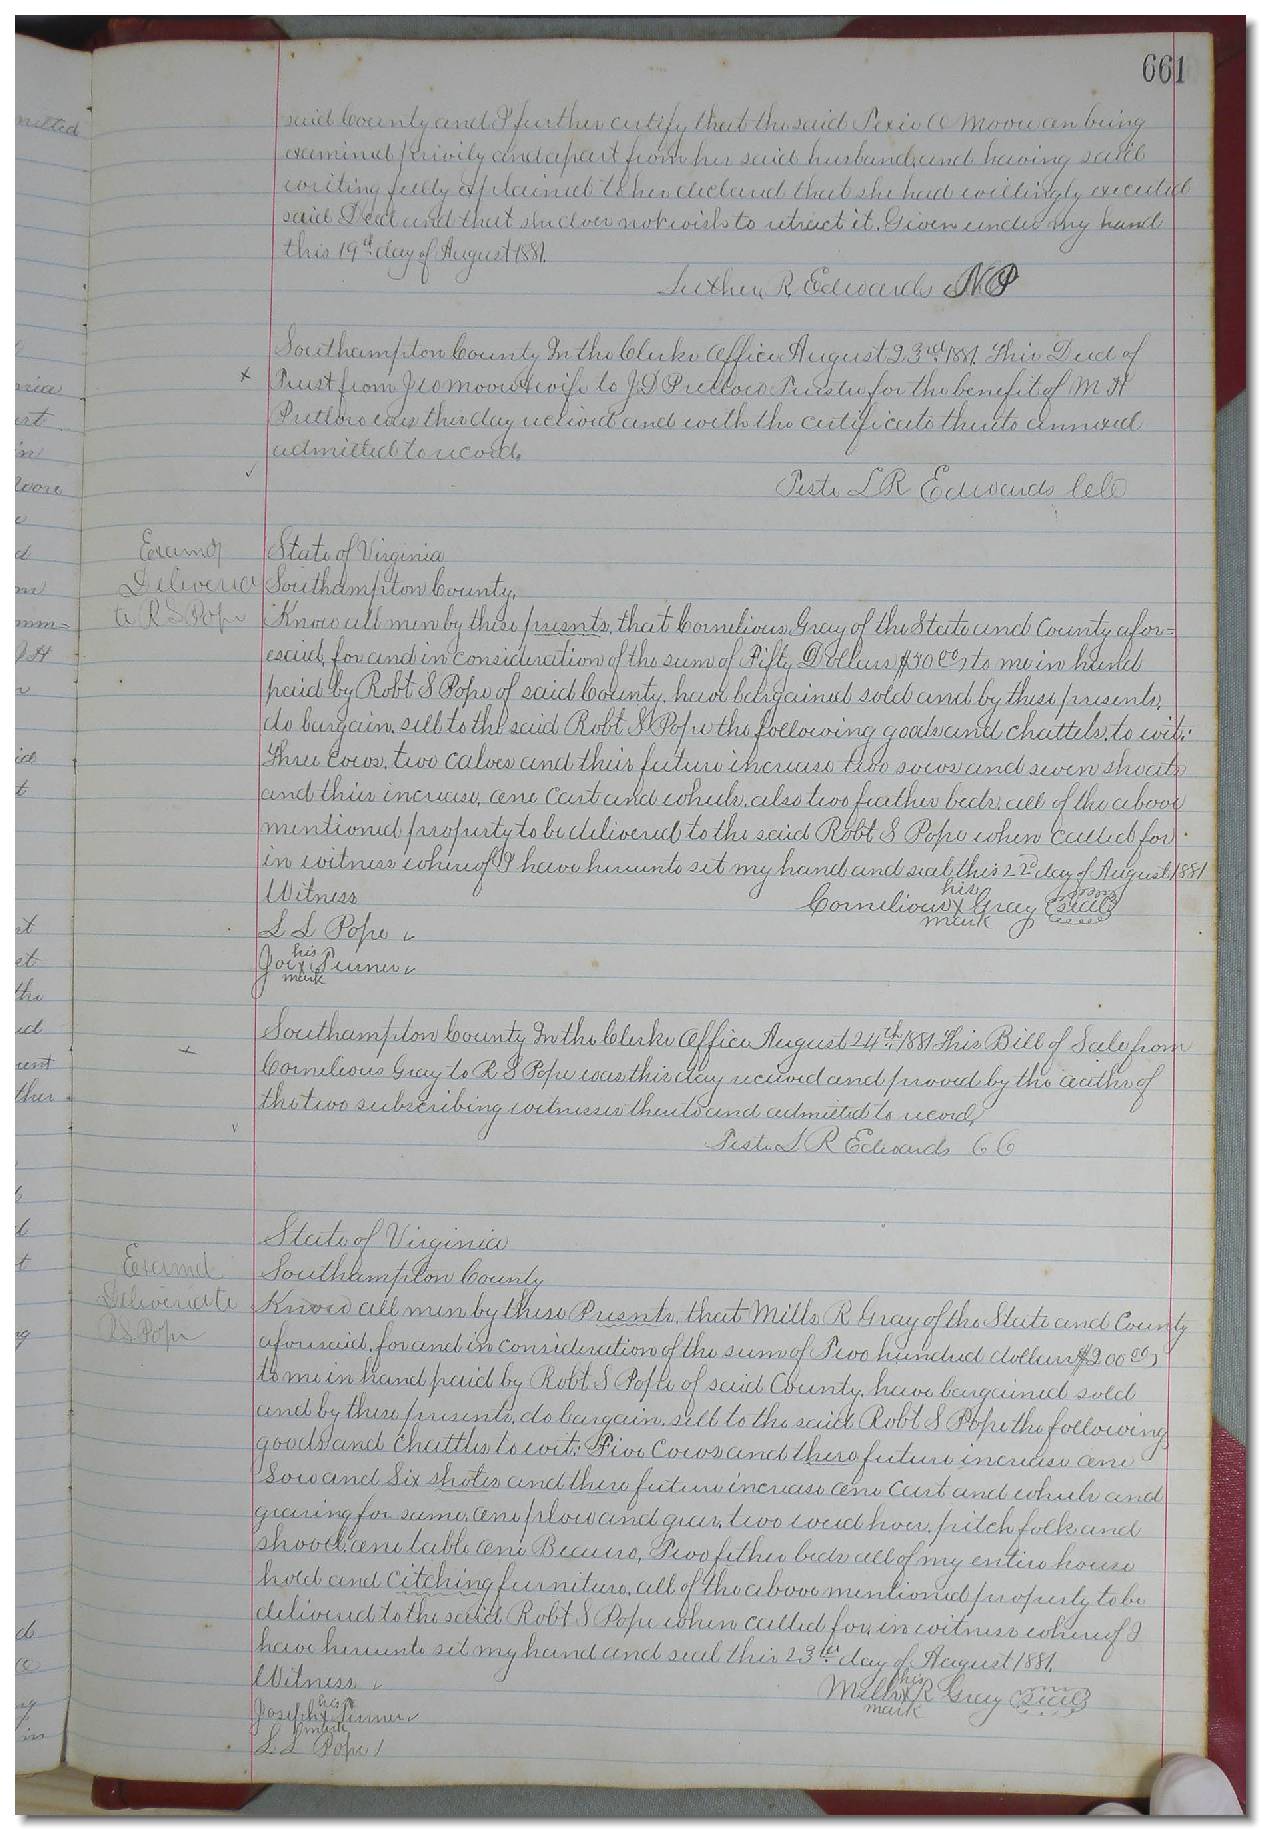 661
said County and I further certify that the said Pixie A Moore an being
examined privily and apart from her said husband, and having said
writing fully explained to her declared that she had willingly executed
said Deed and that she does not wish to retract it. Given under my hand
this 19th day of August 1881.
Luther R, Edwards N P
Southampton County In the Clerks Office August 23rd 1881. This Deed of
Trust from Moore & wife to J D Pretlow Trustee for the benefit of M H
Pretlow was this day received and with the certificate thereto annexed
admitted to record.
Teste L R Edwards
Examd State of Virginia
Delivered Southampton County,
to R S Pope Know all men by these presents, that Cornelious Gray of the State and County afor=
esaid, for and in consideration of the sum of Fifty Dollars $50 00, to me in hand
paid by Robt S Pope of said County, have bargained sold and by these presents,
do bargain, sell to the said Robt S Pope the following goods and chattels, to wit:
Three Cows, two calves and their future increase two sows and seven shoats
and their increase, one Cart and wheels, also two feather beds, all of the above
mentioned property to be delivered to the said Robt S Pope when called for
in witness whereof I have hereunto set my hand and seal this 22d day of August 1881
Witness Cornelious his x mark Gray Seal
L L Pope
Joe his x mark Turner
Southampton County In the Clerks Office August 24th 1881 This Bill of Sale from
Cornelious Gray to R S Pope was this day received and proved by the oaths of
the two subscribing witnesses thereto and admitted to record,
Teste L R Edwards C C
State of Virginia
Examd Southampton County
Delivered to Know all men by these Presnts, that Mills R Gray of the State and County
R S Pope aforesaid, for and in consideration of the sum of Two hundred dollars $200 00,
to me in hand paid by Robt S Pope of said County, have bargained sold
and by these presents, do bargain, sell to the said Robt S Pope the following
goods and Chattles to wit: Five Cows and there future increase one
Sow and Six shotes and there future increase one Cart and wheels and
gearing for same, one plow and gear, two weed hoes, pitch folk and
shovel, one table one Beauro, Two fether beds all of my entire house
hold and citching furniture, all of the above mentioned property to be
delivered to the said Robt S Pope when called for, in witness whereof I
have hereunto set my hand and seal this 23rd day of August 1881.
Witness Mills his x mark R Gray Seal
Joseph his x mark Turner
L L Pope